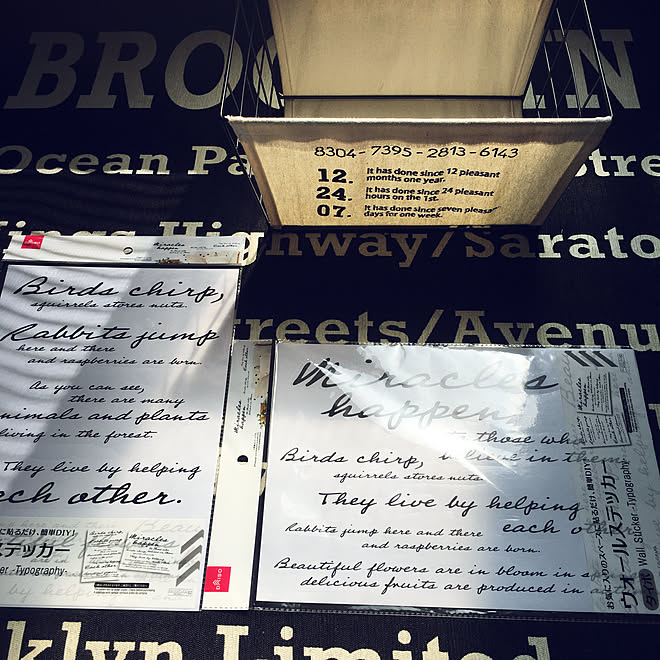 BROOKLYN
Ocean Pa
Stre
Kings Highway/Sarato
treets/Avenu
klyn Limited
8304-7395-2813-6143
12. It has done since 12 pleasant
months one year.
24. It has done since 24 pleasant
hours on the 1st.
07. It has done since seven pleasa
days for one week.
DAISO
Miracles
happen
Birds chirp,
squirrels stores nuts.
Rabbits jump
here and there
and raspberries are born.
As you can see,
there are many
animals and plants
living in the forest.
They live by helping
each other.
に貼るだけ、簡単DIY!
ステッカー
er -Typography-
DAISO
Miracles
happen
to those who
believe in them
Birds chirp,
squirrels stores nuts.
They live by helping
each o
Rabbits jump here and there
and raspberries are born.
Beautiful flowers are in bloom in s
delicious fruits are produced in a
お気に入りのスペースに貼るだけ、簡単DIY!
ウォールステッカー
タイポ Wall Sticker -Typography-